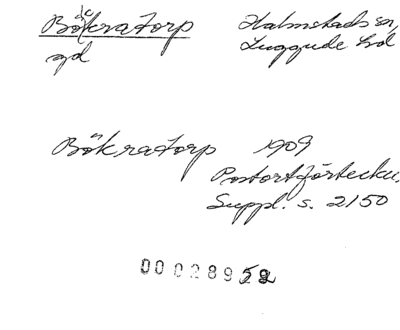 Böckratorp Halmstads sn,
gd Luggude hd
Bökratorp 1909
Postortförteckn.
Suppl. s. 2150
00028952